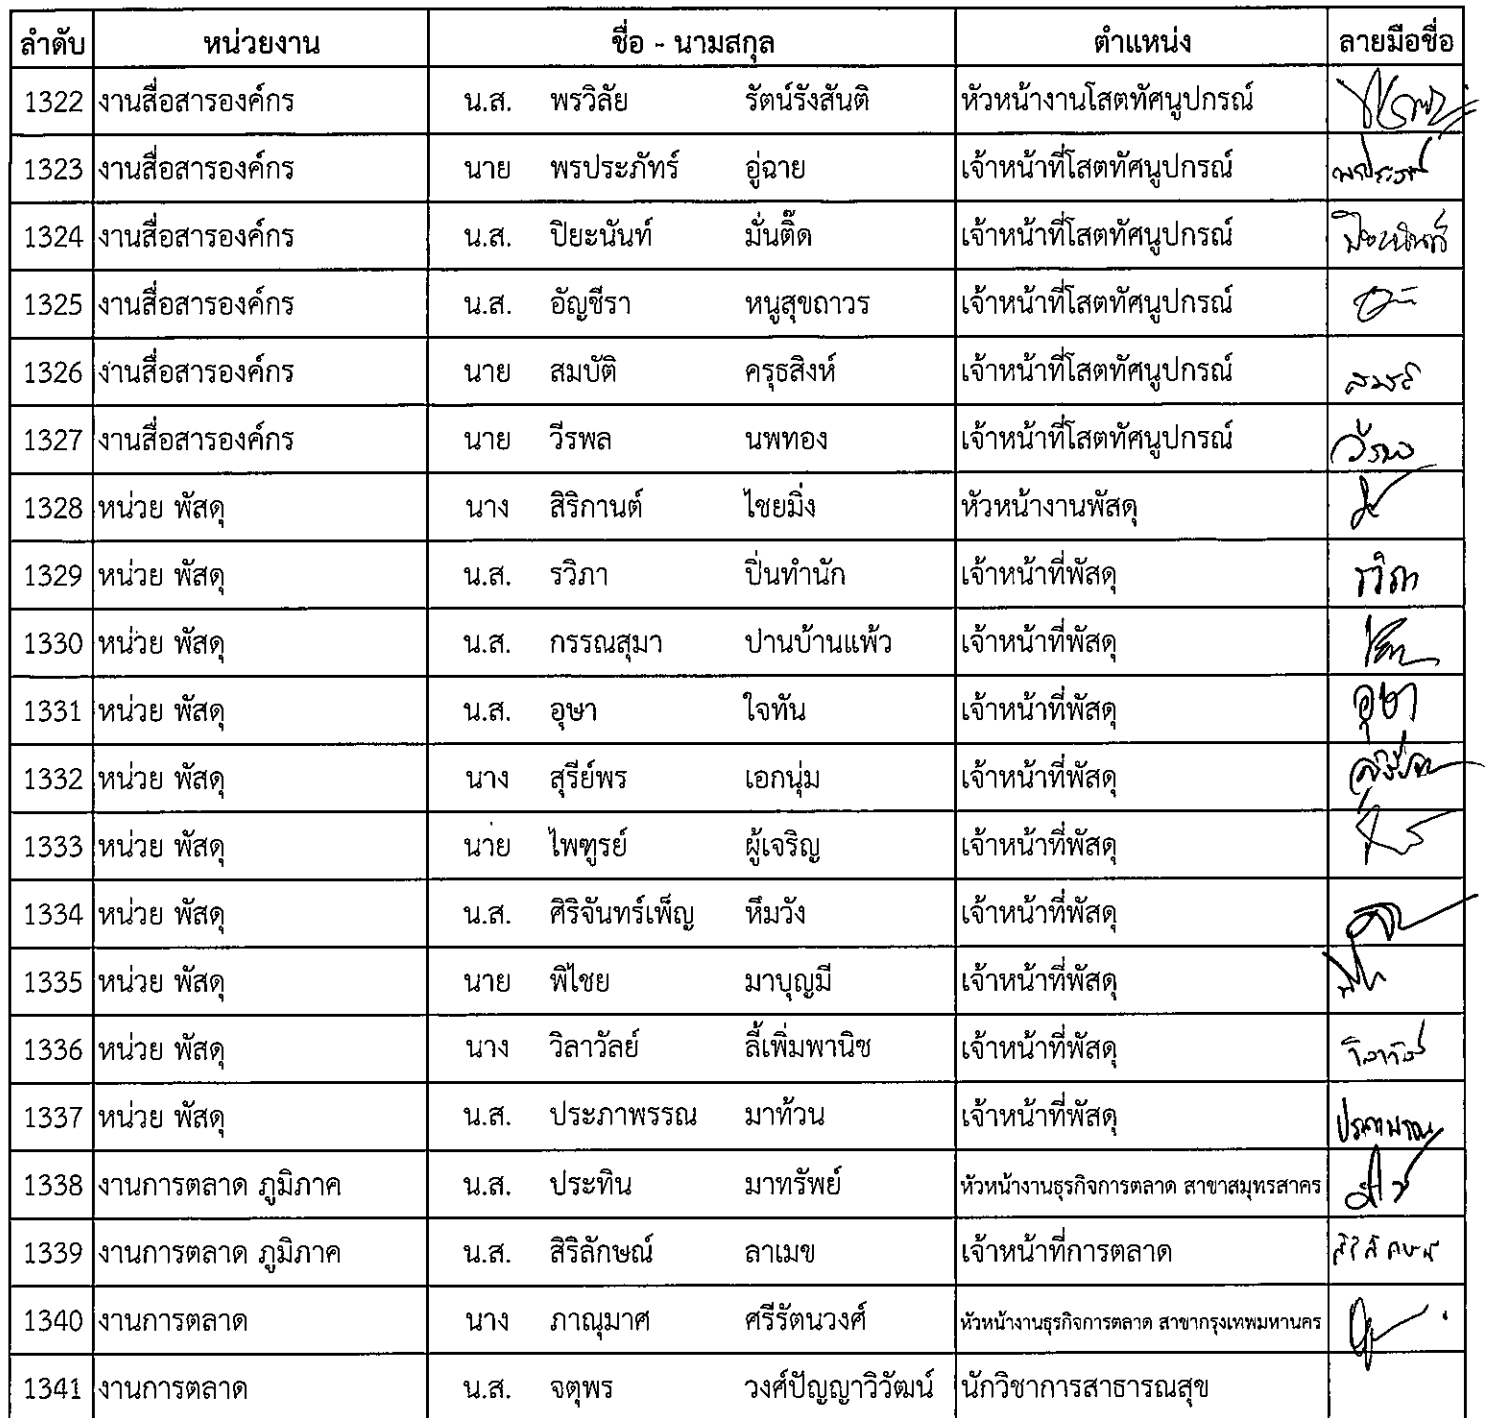 ลำดับ หน่วยงาน ชื่อ - นามสกุล ตำแหน่ง ลายมือชื่อ
1322 งานสื่อสารองค์กร น.ส. พรวิลัย รัตน์รังสันติ หัวหน้างานโสตทัศนูปกรณ์
1323 งานสื่อสารองค์กร นาย พรประภัทร์ อู่ฉาย เจ้าหน้าที่โสตทัศนูปกรณ์
1324 งานสื่อสารองค์กร น.ส. ปิยะนันท์ มั่นติ๊ด เจ้าหน้าที่โสตทัศนูปกรณ์ ปิยะนันท์
1325 งานสื่อสารองค์กร น.ส. อัญชีรา หนูสุขถาวร เจ้าหน้าที่โสตทัศนูปกรณ์
1326 งานสื่อสารองค์กร นาย สมบัติ ครุธสิงห์ เจ้าหน้าที่โสตทัศนูปกรณ์ สมบัติ
1327 งานสื่อสารองค์กร นาย วีรพล นพทอง เจ้าหน้าที่โสตทัศนูปกรณ์ วีรพล
1328 หน่วย พัสดุ นาง สิริกานต์ ไชยมิ่ง หัวหน้างานพัสดุ
1329 หน่วย พัสดุ น.ส. รวิภา ปิ่นทำนัก เจ้าหน้าที่พัสดุ รวิภา
1330 หน่วย พัสดุ น.ส. กรรณสุมา ปานบ้านแพ้ว เจ้าหน้าที่พัสดุ
1331 หน่วย พัสดุ น.ส. อุษา ใจทัน เจ้าหน้าที่พัสดุ อุษา
1332 หน่วย พัสดุ นาง สุรีย์พร เอกนุ่ม เจ้าหน้าที่พัสดุ
1333 หน่วย พัสดุ นาย ไพฑูรย์ ผู้เจริญ เจ้าหน้าที่พัสดุ
1334 หน่วย พัสดุ น.ส. ศิริจันทร์เพ็ญ หึมวัง เจ้าหน้าที่พัสดุ
1335 หน่วย พัสดุ นาย พิไชย มาบุญมี เจ้าหน้าที่พัสดุ
1336 หน่วย พัสดุ นาง วิลาวัลย์ ลี้เพิ่มพานิช เจ้าหน้าที่พัสดุ วิลาวัลย์
1337 หน่วย พัสดุ น.ส. ประภาพรรณ มาท้วน เจ้าหน้าที่พัสดุ ประภาพรรณ
1338 งานการตลาด ภูมิภาค น.ส. ประทิน มาทรัพย์ หัวหน้างานธุรกิจการตลาด สาขาสมุทรสาคร
1339 งานการตลาด ภูมิภาค น.ส. สิริลักษณ์ ลาเมข เจ้าหน้าที่การตลาด สิริลักษณ์
1340 งานการตลาด นาง ภาณุมาศ ศรีรัตนวงศ์ หัวหน้างานธุรกิจการตลาด สาขากรุงเทพมหานคร
1341 งานการตลาด น.ส. จตุพร วงศ์ปัญญาวิวัฒน์ นักวิชาการสาธารณสุข